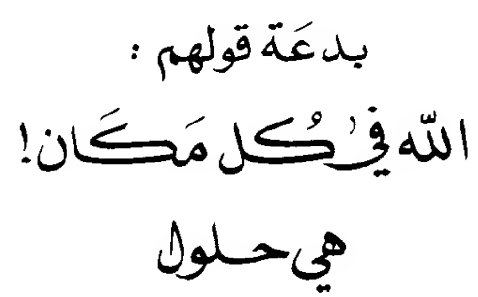 بدعَة قولهم :
اللّه في كُل مَكَان!
هي حلول